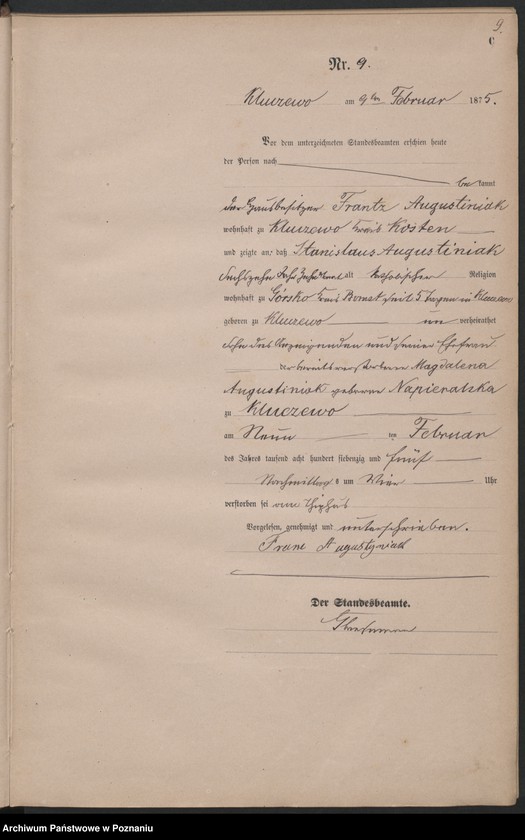 9.
Nr. 9.
Kluczewo am 9ten Februar 1875.
Vor dem unterzeichneten Standesbeamten erschien heute
der Person nach
be kannt
der Hausbesitzer Frantz Augustiniak
wohnhaft zu Kluczewo Kreis Kosten
und zeigte an, daß Stanislaus Augustiniak
Sechszehn Jahr alt katholischer Religion
wohnhaft zu Górsko Kreis Bomst seit 5 Tagen in Kluczewo
geboren zu Kluczewo un verheirathet
Sohn des Anzeigenden und seiner Ehefrau
der bereits verstorbenen Magdalena
Augustiniak geborene Napieralska
zu Kluczewo
am Neun ten Februar
des Jahres tausend acht hundert siebenzig und fünf
Nachmittags um Vier Uhr
verstorben sei am Thyphus
Vorgelesen, genehmigt und unterschrieben.
Franc Augustyniak
Der Standesbeamte.
Archiwum Państwowe w Poznaniu